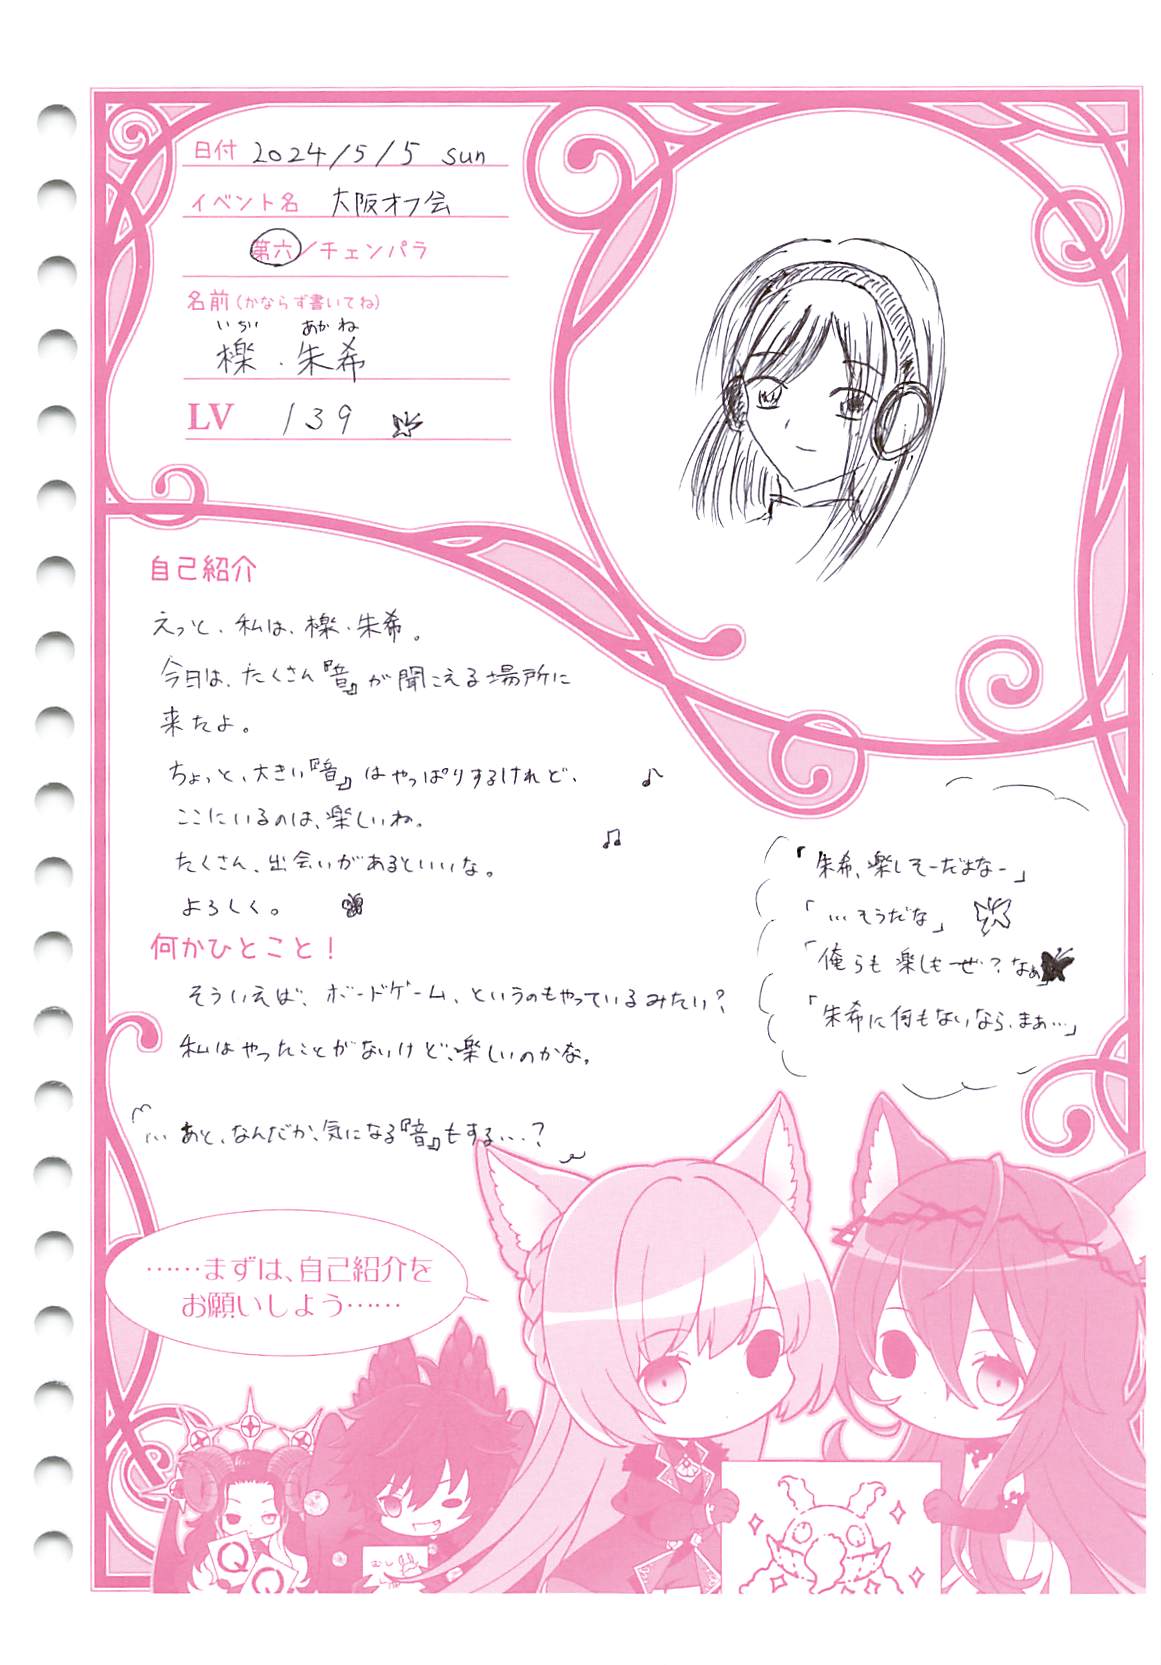 日付 2024/5/5 sun
イベント名 大阪オフ会
第六/チェンパラ
名前(かならず書いてね)
いちい あかね
櫟・朱希
LV 139
自己紹介
えっと、私は、櫟・朱希。
今日は、たくさん『音』が聞こえる場所に
来たよ。
ちょっと、大きい『音』はやっぱりするけれど、
ここにいるのは、楽しいね。
たくさん、出会いがあるといいな。
よろしく。
「朱希、楽しそーだなー」
「…そうだな」
「俺らも楽しもーぜ?なぁ」
「朱希に何もないなら、まぁ…」
何かひとこと!
そういえば、ボードゲーム、というのもやっているみたい?
私はやったことがないけど、楽しいのかな。
…あと、なんだか、気になる『音』もする…?
……まずは、自己紹介を
お願いしよう……
Q Q